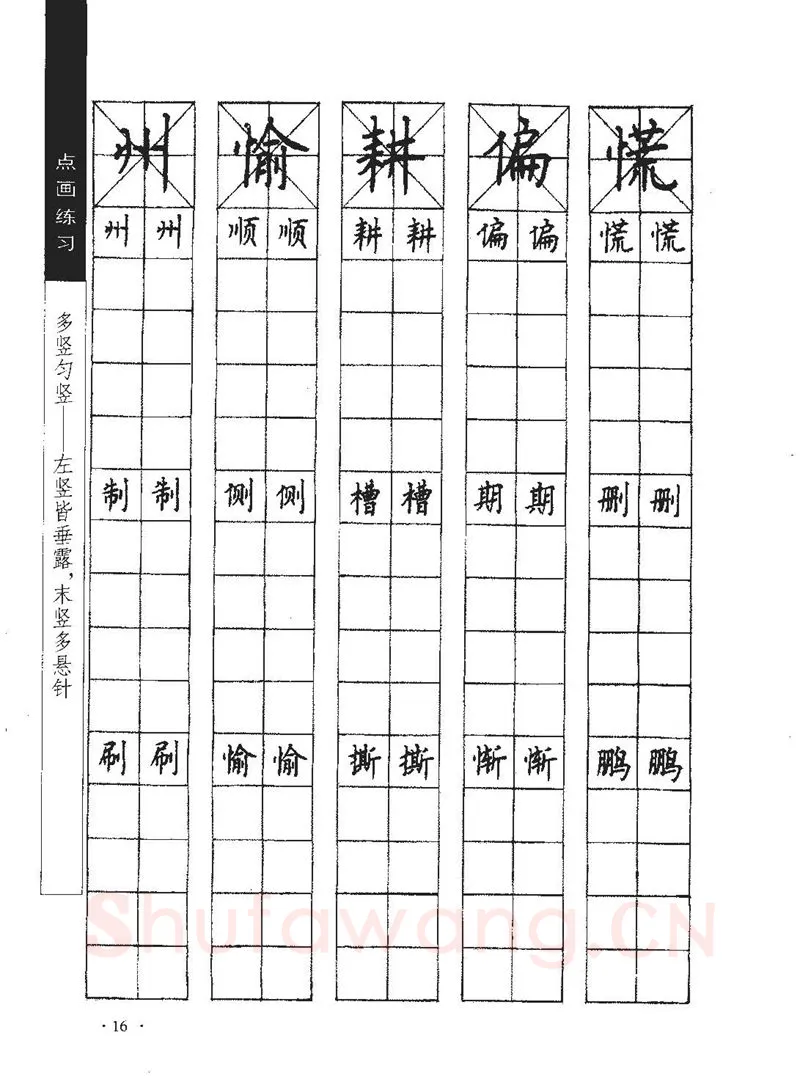 点画练习
多竖匀竖——左竖皆垂露,末竖多悬针
州 愉 耕 偏 慌
州 州 顺 顺 耕 耕 偏 偏 慌 慌
制 制 侧 侧 槽 槽 期 期 删 删
刷 刷 愉 愉 撕 撕 惭 惭 鹏 鹏
Shufawang.CN
· 16 ·